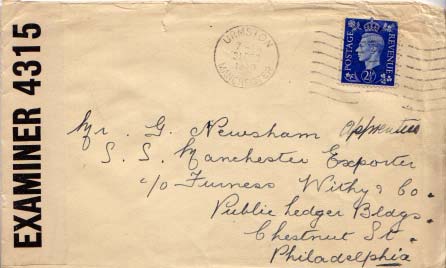 EXAMINER 4315
URMSTON
MANCHESTER
POSTAGE
REVENUE
2½
Mr. G. Newsham apprentice
S. S. Manchester Exporter
c/o Furness Withy & Co.
Public Ledger Bldgs.
Chestnut St.
Philadelphia